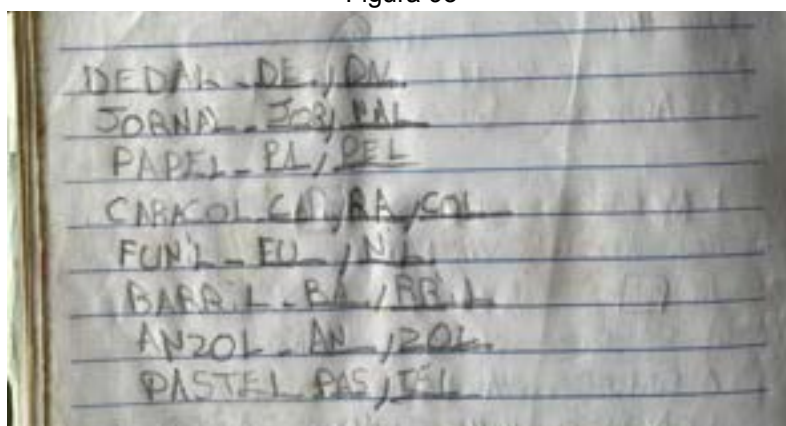 Figura
DEDAL - DE / DAL
JORNAL - JOR / NAL
PAPEL - PA / PEL
CARACOL CA / RA / COL
FUNIL - FU / NIL
BARRIL - BA / RRIL
ANZOL - AN / ZOL
PASTEL PAS / TEL